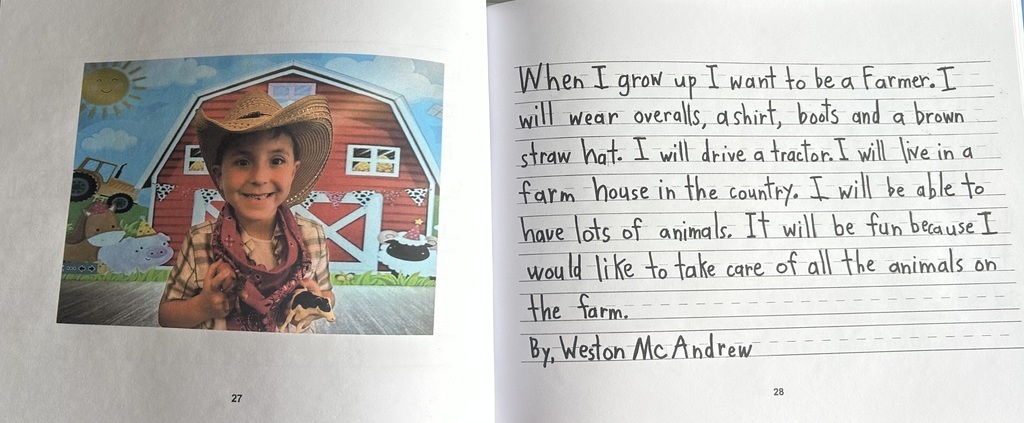 27
When I grow up I want to be a Farmer. I
will wear overalls, a shirt, boots and a brown
straw hat. I will drive a tractor. I will live in a
farm house in the country. I will be able to
have lots of animals. It will be fun because I
would like to take care of all the animals on
the farm.
By, Weston McAndrew
28